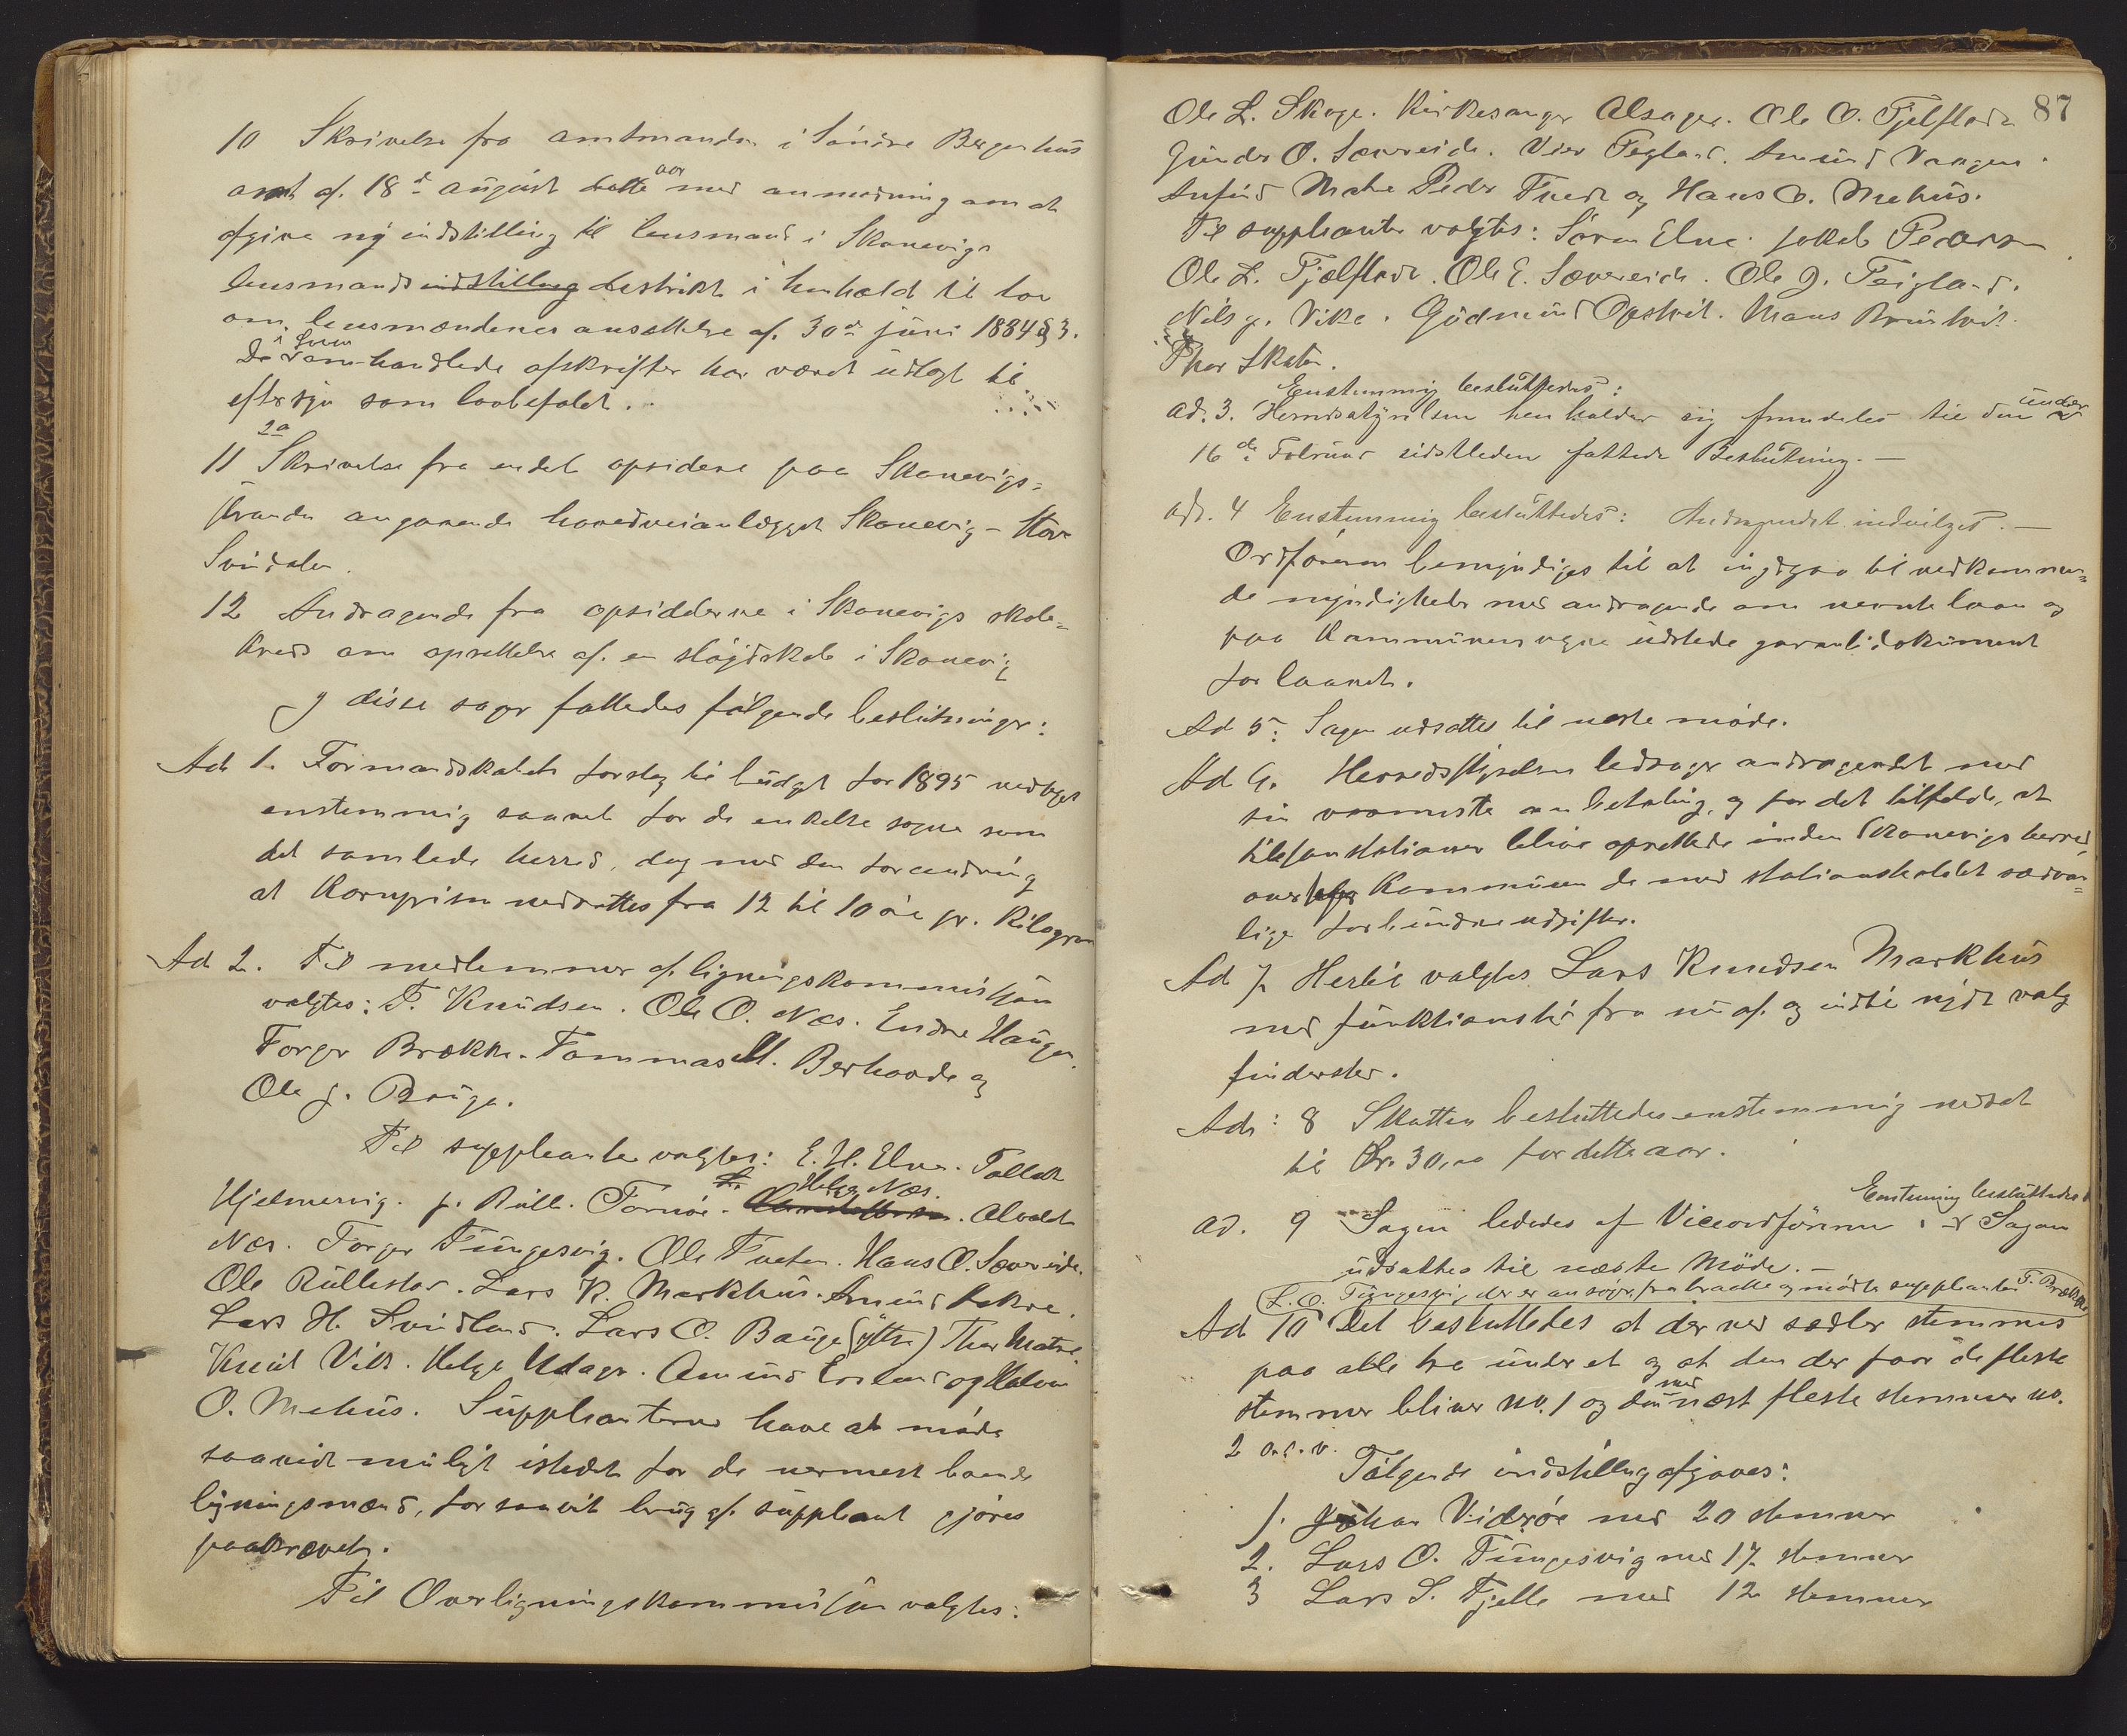 10 Skrivelse fra amtmanden i Søndre Bergenhus
amt af 18de august dette aar med anmodning om at
afgive ny indstilling til lensmand i Skonevigs
lensmandsindstilling destrikt i henhold til lov
om lensmændenes ansættelse af 30de juni 1884 § 3.
De i sum omhandlede afskrifter har været udlagt til
eftersyn som lovbefalet.
11 2a Skrivelse fra endel opsidere paa Skonevigs-
stranden angaaende hovedveianlægget Skonevig - Store
Svindalen.
12 Andragende fra opsidderne i Skonevigs skole-
kreds om oprettelse af en sløjdskole i Skonevig
I disse sager fattedes følgende beslutninger:
Ad 1. Formandskabets forslag til budget for 1895 vedtoges
enstemmig saavel for de enkelte sogne som
det samlede herred, dog med den forandring
at Kornprisen nedsattes fra 12 til 10 øre pr. Kilogram
Ad 2. Til medlemmer af ligningskommissjon
valgtes: T. Knudsen. Ole O. Næs. Endre Haugen.
Torger Brække. Tommas M. Berhovde og
Ole J. Bauge.
Til suppleanter valgtes: E. H. Elne. Tollak
Hjelmervig. J. Rull. Tornøe. Helge Næs. Alvald
Næs. Torger Tungesvig. Ole Tveten. Hans O. Sævereide.
Ole Rullestad. Lars K. Markhus. Amund Aakre.
Lars H. Svindland. Lars O. Bauge (yttre) Thor Matre.
Knut Vik. Helge Milager. Amund Espeland og Halvor
O. Mehus. Suppleanterne have at møde
saavidt muligt istedet for de nermest boende
ligningsmænd, forsaavit brug af suppleant gjøres
paakrævet.
Til Overligningskommissjon valgtes:
87
Ole L. Skoge. Kirkesanger Alsager. Ole O. Fjelstad
Gunder O. Sævereide. Vier Tegland. Amund Vaagen.
Anfind Matre Peder Tvedt og Hans O. Mehus.
Til suppleanter valgtes: Søren Elne. Jokob Pedersen
Ole L. Fjælstad. Ole E. Sævereide. Ole J. Teigland.
Nils J. Vike. Gudmund Opsvik. Mons Bruntvit.
Thor Skaten.
Enstemmig besluttedes:
ad. 3. Herredsstyrelsen henholder sig fremdeles til den under
16de Februar sidstleden fattede Beslutning.—
ad. 4 Enstemmig besluttedes: Andragendet indvilges.—
Ordføreren bemyndiges til at indgaa til vedkommen-
de myndigheder med andragende om nevnte laan og
paa Kommunens vegne udstede garantidokument
for laanet.
Ad 5: Sagen udsattes til neste møde.
Ad 6. Herredsstyrelsen ledsager andragendet med
sin varmeste anbefaling, og for det tilfelde, at
telefonstationer blive oprettede inden Skonevigs herred,
overtage Kommunen de med stationsholdet sædvan-
lige forbundne udgifter.
Ad 7 Hertil valgtes Lars Knudsen Markhus
med funktionstid fra nu af og indtil nyt valg
finder sted.
Ad: 8 Skatten besluttedes enstemmig nedsat
til Kr. 30,00 for dette aar.
Enstemmig besluttedes
ad. 9 Sagen lededes af Viceordføreren. Sagen
udsattes til næste Møde.—
L. O. Tungesvig, der er ansøger, fratraadte og mødte suppleanten T. Brække
Ad 10 Det besluttedes at der ved sedler stemmes
paa alle tre under et og at den der faar de fleste
stemmer bliver no. 1 og den med næst fleste stemmer no.
2 o. s. v.
Følgende indstilling afgaves:
1. Johan Viderøe med 20 stemmer
2. Lars O. Tungesvig med 17 stemmer
3 Lars S. Fjelle med 12 stemmer